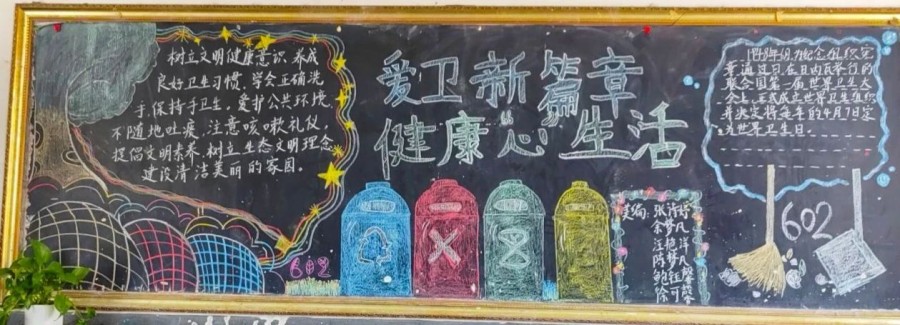 树立文明健康意识，养成
良好卫生习惯，学会正确洗
手，保持手卫生。爱护公共环境，
不随地吐痰，注意咳嗽礼仪，
提倡文明素养，树立生态文明理念
建设清洁美丽的家园。
爱卫新篇章
健康心生活
602
美编：张诗婷
余梦凡
汪艳洋
陈梦凡
鲍钰
徐可
联合国第一届世界卫生大
会上，正式成立世界卫生组织
并决定将每年的4月7日定
为世界卫生日。
602